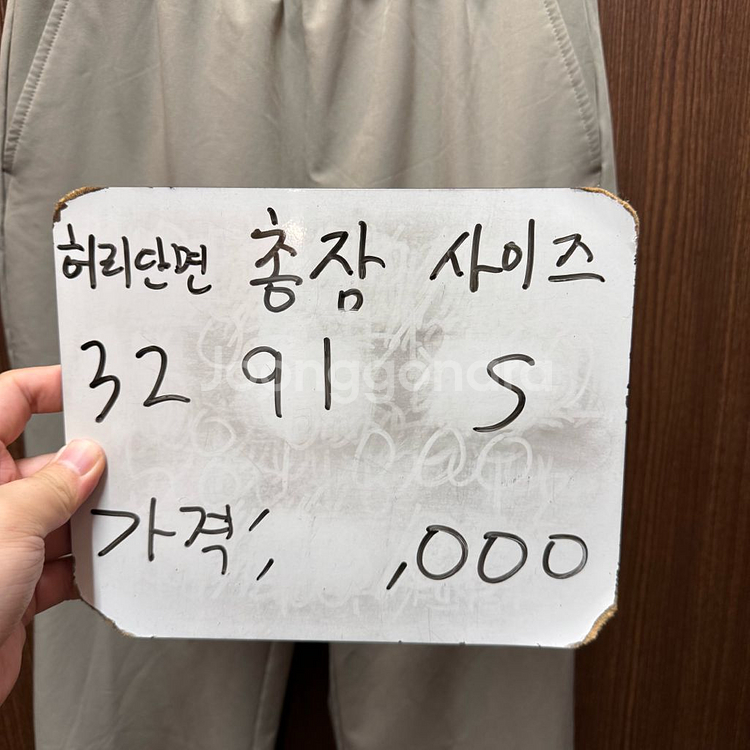 허리단면 총장 사이즈
32 91 S
Joonggonara
가격; ,000